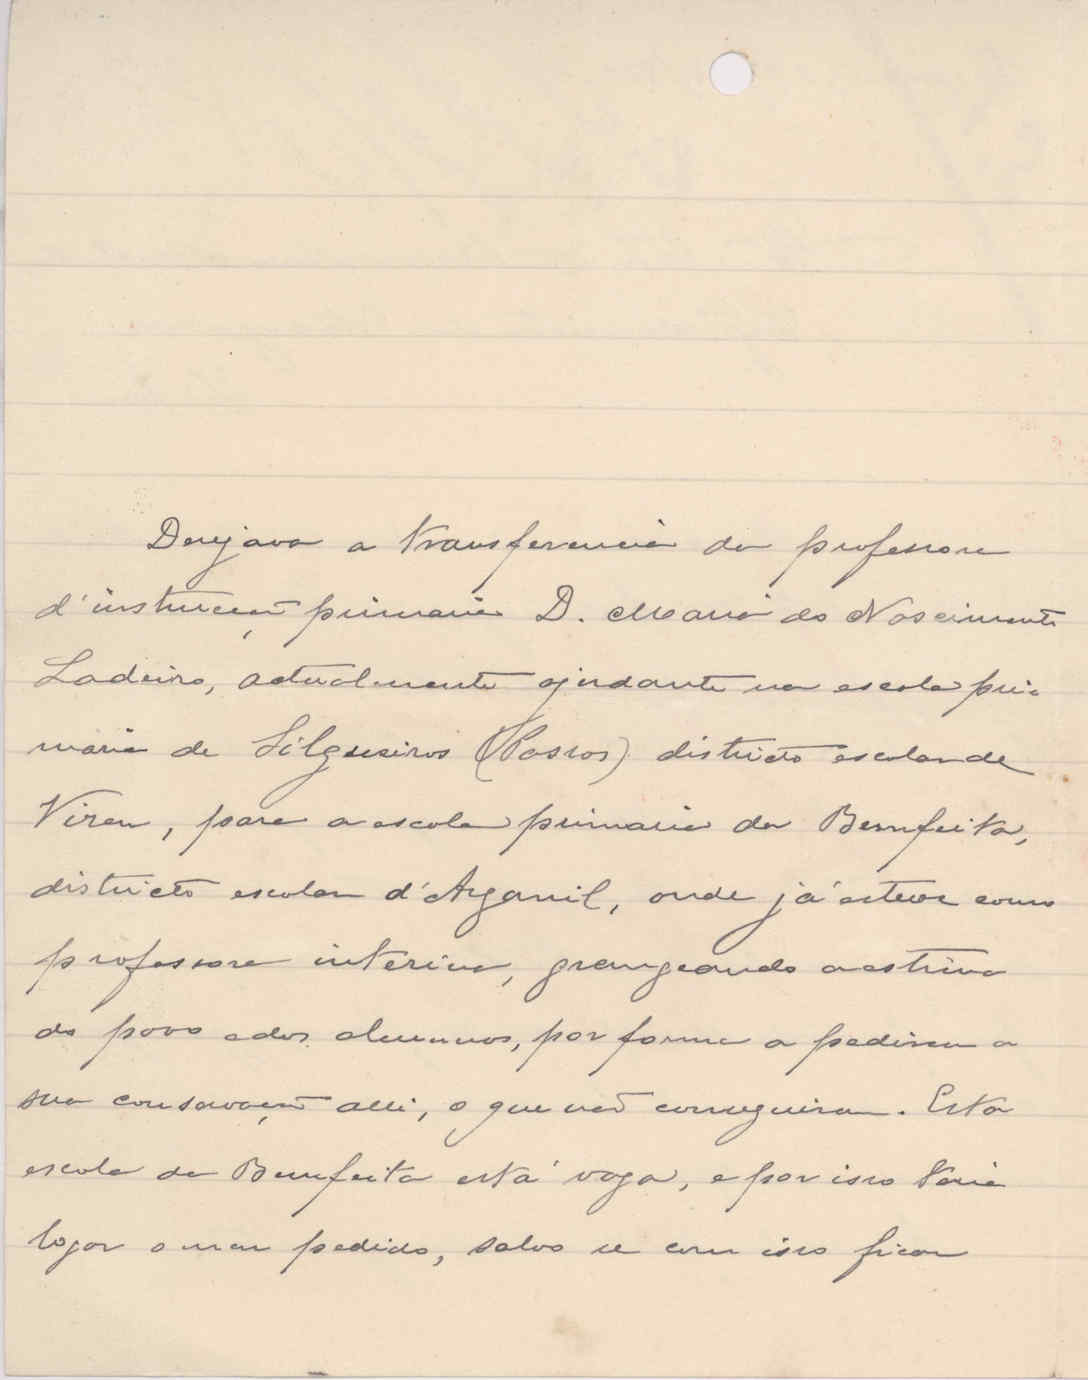 Desejava a transferencia da professora
d'instrucção primaria D. Maria do Nascimento
Ladeiro, actualmente ajudante na escola pri-
maria de Silgueiros (Passos) districto escolar de
Viseu, para a escola primaria da Bemfeita,
districto escolar d'Arganil, onde já esteve como
professora interina, grangeando a estima
do povo e dos alumnos, por forma a pedirem a
sua conservação alli, o que não conseguiram. Esta
escola da Bemfeita está vaga, e por isso teria
logar o meu pedido, salvo se com isso ficar